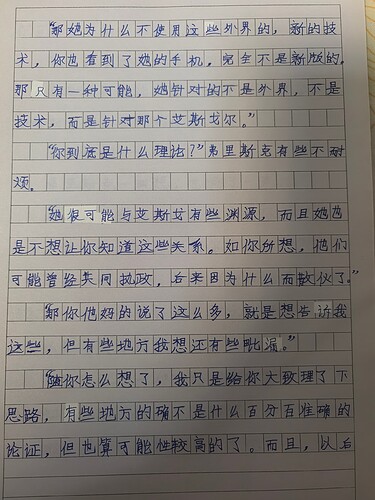 “那她为什么不使用这些外界的，新的技
术，你也看到了她的手机，完全不是新版的。
那只有一种可能，她针对的不是外界，不是
技术，而是针对那个艾斯戈尔。”
“你到底是什么理论？”弗里斯克有些不耐
烦。
“她很可能与艾斯戈有些渊源，而且她也
是不想让你知道这些关系。如你所想，他们
可能曾经共同执政，后来因为什么而散伙了。”
“那你他妈的说了这么多，就是想告诉我
这些，但有些地方我想还有些毗漏。”
“随你怎么想了，我只是给你大致理了下
思路，有些地方的确不是什么百分百准确的
论证，但也算可能性较高的了。而且，以后